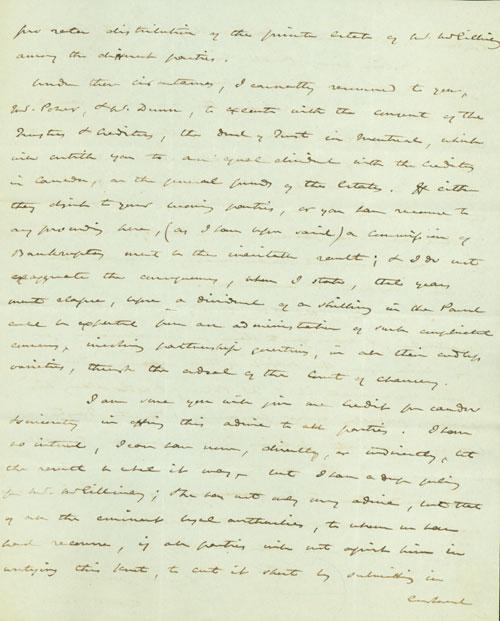 pro rata distribution of the private Estate of Mr McGillivray
among the different parties.
Under these circumstances, I earnestly recommend to you,
Mr. Poker, & Mr. Dunn, to execute with the consent of the
Trustees & Creditors, the deed of Trust in Montreal, which
will entitle you to an equal dividend with the Creditors
in Canada, on the general funds of the Estates. If either
they object to your becoming parties, or you have recourse to
any proceeding here, (as I have before said) a commission of
Bankruptcy must be the inevitable result; & I do not
exaggerate the consequences, when I state, that years
must elapse, before a dividend of a shilling in the Pound
could be expected from an administration of such complicated
concerns, involving partnership questions, in all their endless
varieties, through the ordeal of the Court of Chancery.
I am sure you will give me credit for candor
& sincerity in offering this advice to all parties. I have
no interest, I can have none, directly, or indirectly, let
the result be what it may, but I have a deep feeling
for Mr. McGillivray; & he has not only my advice, but that
of all the eminent legal authorities, to whom we have
had recourse, if all parties will not assist him in
untying this knot, to cut it short by submitting in